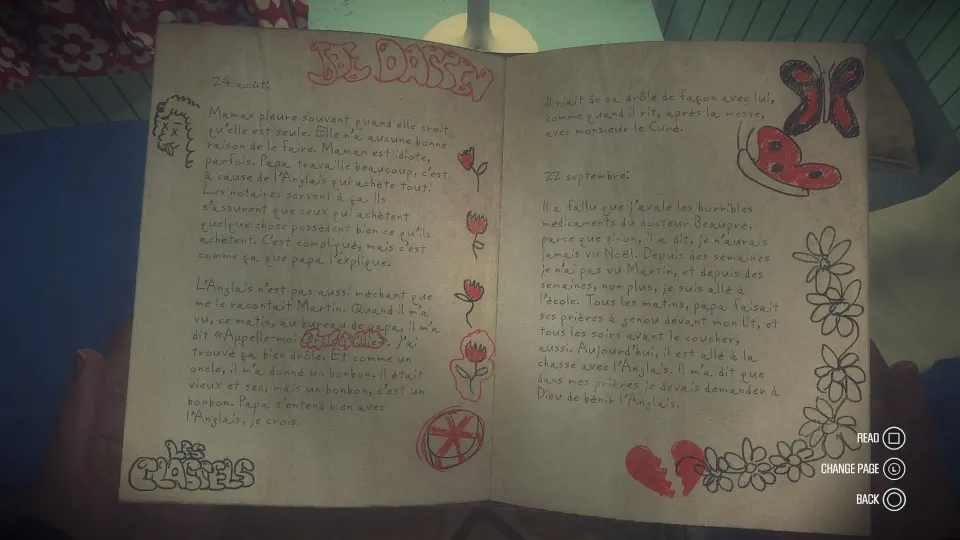 JOE DASSIN
24 août:
Maman pleure souvent quand elle croit
qu'elle est seule. Elle n'a aucune bonne
raison de le faire. Maman est idiote,
parfois. Papa travaille beaucoup, c'est
à cause de l'Anglais qui achète tout.
Les notaires servent à ça. Ils
s'assurent que ceux qui achètent
quelque chose possèdent bien ce qu'ils
achètent. C'est compliqué, mais c'est
comme ça que papa l'explique.
L'Anglais n'est pas aussi méchant que
me le racontait Martin. Quand il m'a
vu, ce matin, au bureau de papa, il m'a
dit «Appelle-moi ». J'ai
trouvé ça bien drôle. Et comme un
oncle, il m'a donné un bonbon. Il était
vieux et sec, mais un bonbon, c'est un
bonbon. Papa s'entend bien avec
l'Anglais, je crois.
LES
CLASSELS
Il riait de sa drôle de façon avec lui,
comme quand il rit, après la messe,
avec monsieur le Curé.
22 septembre:
Il a fallu que j'avale les horribles
médicaments du docteur Beaupré,
parce que sinon, il a dit, je n'aurais
jamais vu Noël. Depuis des semaines
je n'ai pas vu Martin, et depuis des
semaines, non plus, je suis allé à
l'école. Tous les matins, papa faisait
ses prières à genou devant mon lit, et
tous les soirs avant le coucher,
aussi. Aujourd'hui, il est allé à la
chasse avec l'Anglais. Il m'a dit que
dans mes prières je devais demander à
Dieu de bénir l'Anglais.
READ
CHANGE PAGE L
BACK